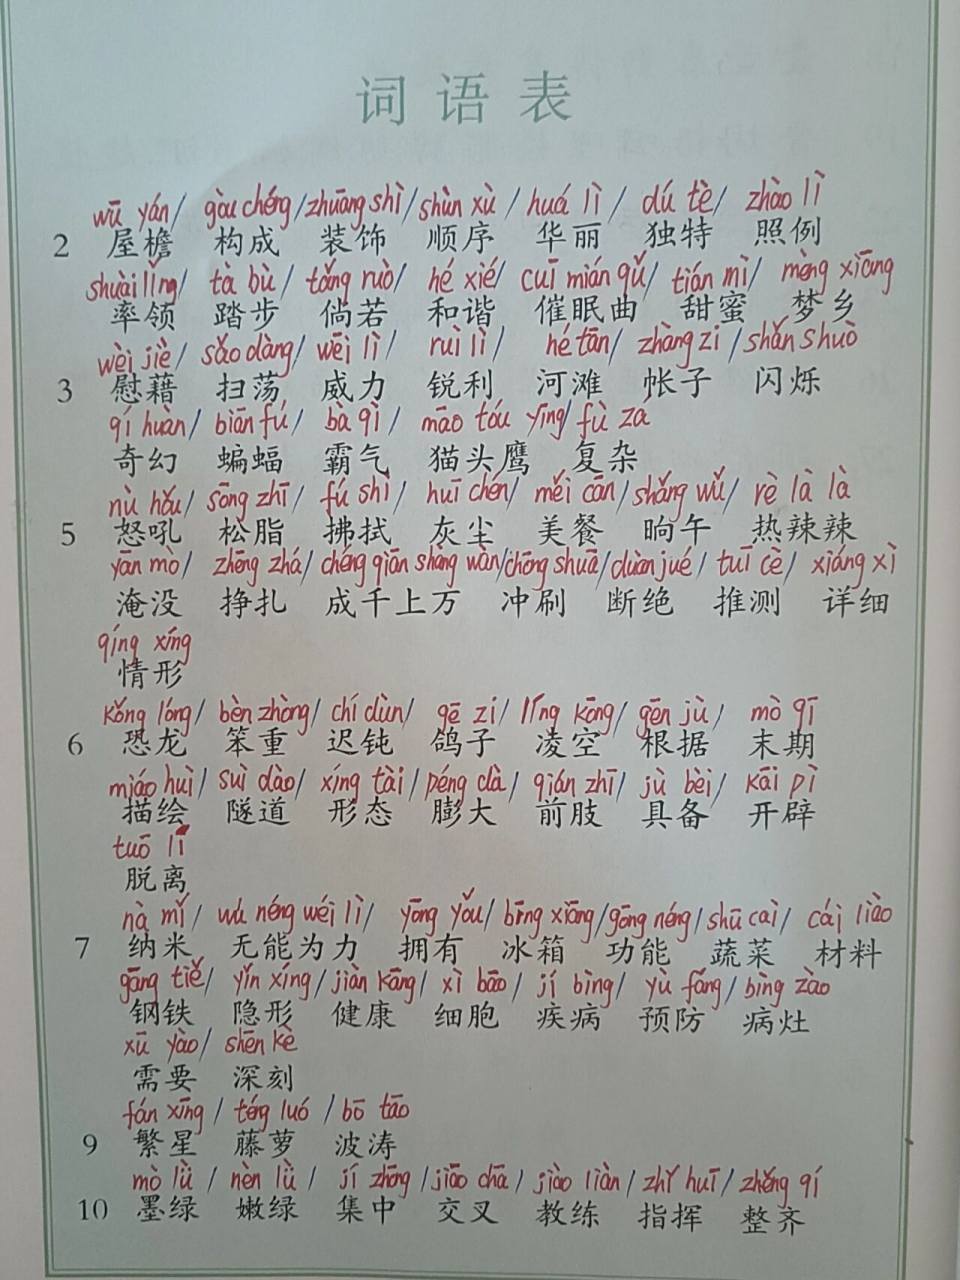 词语表
wū yán/ gòu chéng/zhuāng shì/shùn xù/huá lì/ dú tè/ zhào lì
2 屋檐 构成 装饰 顺序 华丽 独特 照例
shuài lǐng/ tà bù/ tǎng ruò/ hé xié/ cuī mián qǔ/ tián mì/ mèng xiāng
率领 踏步 倘若 和谐 催眠曲 甜蜜 梦乡
wèi jiè/ sǎo dàng/ wēi lì/ ruì lì/ hé tān/ zhàng zi/shǎn shuò
3 慰藉 扫荡 威力 锐利 河滩 帐子 闪烁
qí huàn/ biān fú/ bà qì/ māo tóu yīng/ fù zá
奇幻 蝙蝠 霸气 猫头鹰 复杂
nù hǒu/ sōng zhī/ fú shì/ huī chén/ měi cān/shǎng wǔ/ rè là là
5 怒吼 松脂 拂拭 灰尘 美餐 晌午 热辣辣
yān mò/ zhēng zhá/ chéng qiān shàng wàn/chōng shuā/duàn jué/ tuī cè/ xiáng xì
淹没 挣扎 成千上万 冲刷 断绝 推测 详细
qíng xíng
情形
kǒng lóng/ bèn zhòng/ chí dùn/ gē zi/ líng kōng/ gēn jù/ mò qī
6 恐龙 笨重 迟钝 鸽子 凌空 根据 末期
miáo huì/ suì dào/ xíng tài/péng dà/ qián zhī/ jù bèi/ kāi pì
描绘 隧道 形态 膨大 前肢 具备 开辟
tuō lí
脱离
nà mǐ/ wú néng wéi lì/ yōng yǒu/ bīng xiāng/gōng néng/shū cài/ cái liào
7 纳米 无能为力 拥有 冰箱 功能 蔬菜 材料
gāng tiě/ yǐn xíng/jiàn kāng/ xì bāo/ jí bìng/ yù fáng/bìng zào
钢铁 隐形 健康 细胞 疾病 预防 病灶
xū yào/ shēn kè
需要 深刻
fán xīng/ téng luó/bō tāo
9 繁星 藤萝 波涛
mò lǜ/ nèn lǜ/ jí zhōng/jiāo chā/ jiào liàn/ zhǐ huī/ zhěng qí
10 墨绿 嫩绿 集中 交叉 教练 指挥 整齐